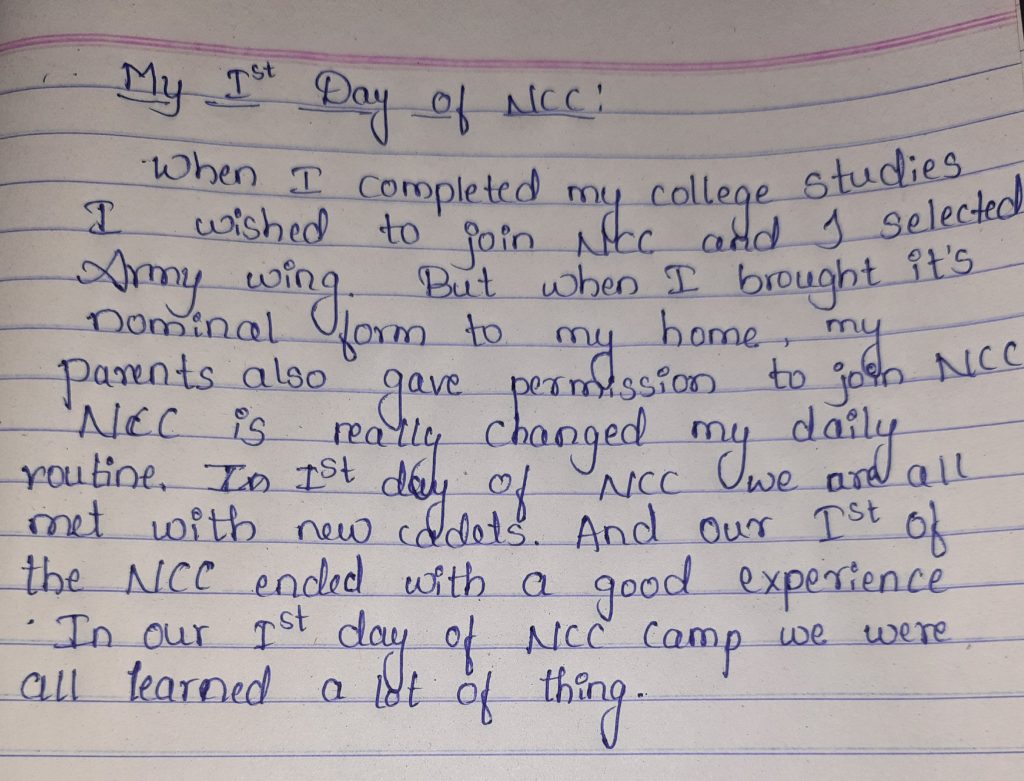 My Ist Day of NCC:
When I completed my college studies
I wished to join NCC and I selected
Army wing. But when I brought it's
nominal form to my home, my
parents also gave permission to join NCC
NCC is really changed my daily
routine. In Ist day of NCC we are all
met with new cadets. And our Ist of
the NCC ended with a good experience
. In our Ist day of NCC camp we were
all learned a lot of thing.